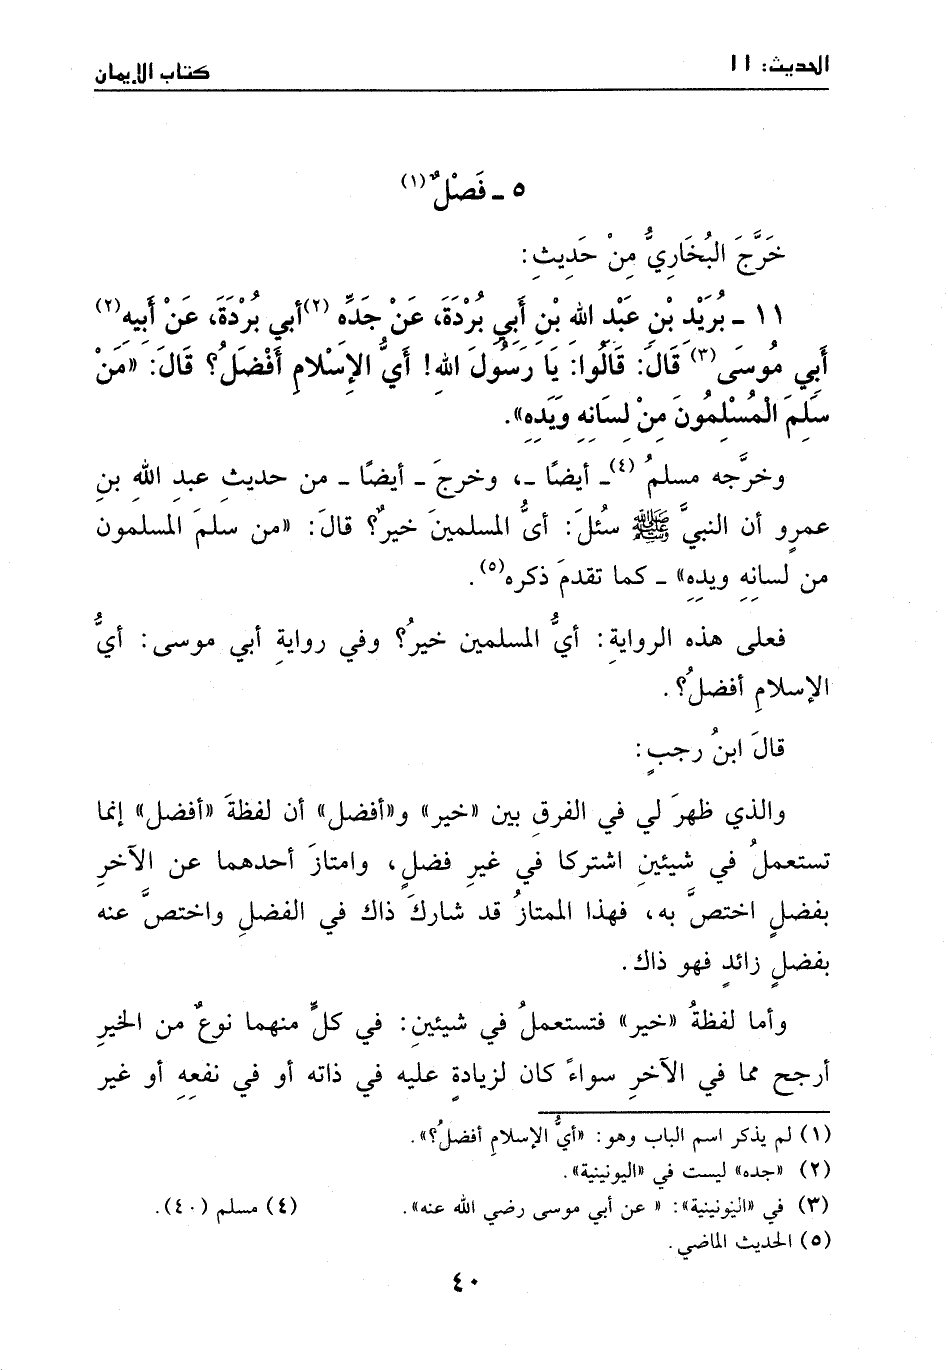 الحديث: ١١
كتاب الإيمان
٥ ـ فَصْلٌ(١)
خَرَّجَ البُخَارِيُّ مِنْ حَدِيثِ:
١١ ـ بُرَيْدِ بْنِ عَبْدِ اللهِ بْنِ أَبِي بُرْدَةَ، عَنْ جَدِّهِ (٢)أَبِي بُرْدَةَ، عَنْ أَبِيهِ(٢)
أَبِي مُوسَى(٣) قَالَ: قَالُوا: يَا رَسُولَ اللهِ! أَيُّ الإِسْلامِ أَفْضَلُ؟ قَالَ: «مَنْ
سَلِمَ الْمُسْلِمُونَ مِنْ لِسَانِهِ وَيَدِهِ».
وخرَّجه مسلمُ(٤)ـ أيضًا ـ، وخرجَ ـ أيضًا ـ من حديثِ عبدِ اللهِ بنِ
عمرٍو أن النبيَّ ﷺ سُئلَ: أيُّ المسلمينَ خيرٌ؟ قالَ: «من سلمَ المسلمون
من لسانِهِ ويدِهِ» ـ كما تقدمَ ذكره(٥).
فعلى هذه الروايةِ: أيُّ المسلمين خيرُ؟ وفي روايةِ أبي موسى: أيُّ
الإسلامِ أفضلُ؟.
قالَ ابنُ رجبٍ:
والذي ظهرَ لي في الفرقِ بين «خير» و«أفضل» أن لفظةَ «أفضل» إنما
تستعملُ في شيئينِ اشتركا في غيرِ فضلٍ، وامتازَ أحدهما عن الآخرِ
بفضلٍ اختصَّ به، فهذا الممتازُ قد شاركَ ذاك في الفضلِ واختصَّ عنه
بفضلٍ زائدٍ فهو ذاك.
وأما لفظةُ «خير» فتستعملُ في شيئينِ: في كلٍّ منهما نوعٌ من الخيرِ
أرجح مما في الآخرِ سواءً كان لزيادةٍ عليه في ذاته أو في نفعِهِ أو غير
(١) لم يذكر اسم الباب وهو: «أيُّ الإسلامِ أفضلُ؟».
(٢) «جده» ليست في «اليونينية».
(٣) في «اليونينية»: « عن أبي موسى رضي الله عنه». (٤) مسلم (٤٠).
(٥) الحديث الماضي.
٤٠